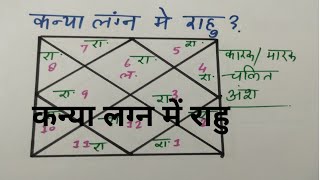 कन्या लग्न मे राहु ?
7 रा. रा. 5
रा. 8 6 ल. 4 रा.
कारक/मारक
चलित
अंश
रा. 9 रा. 3
कन्या लग्न में राहु
10
11 रा रा. 1